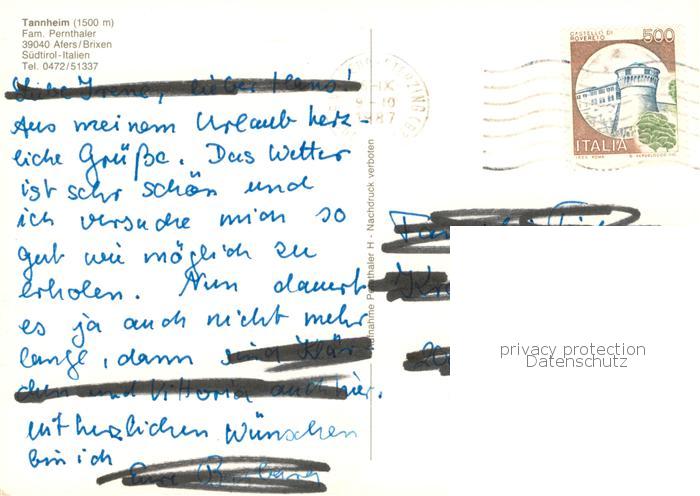 Tannheim (1500 m)
Fam. Pernthaler
39040 Afers/Brixen
Südtirol-Italien
Tel. 0472/51337
CASTELLO DI
ROVERETO
500
ITALIA
Liebe Irene, lieber Hans!
Aus meinem Urlaub herz
liche Grüße. Das Wetter
ist sehr schön und
ich versuche mich so
gut wie möglich zu
erholen. Nun dauert
es ja auch nicht mehr
lange, dann sind Klär
chen und Vittoria auch hier.
Mit herzlichen Wünschen
bin ich
Eure Barbara
Aufnahme Pernthaler H - Nachdruck verboten
privacy protection
Datenschutz